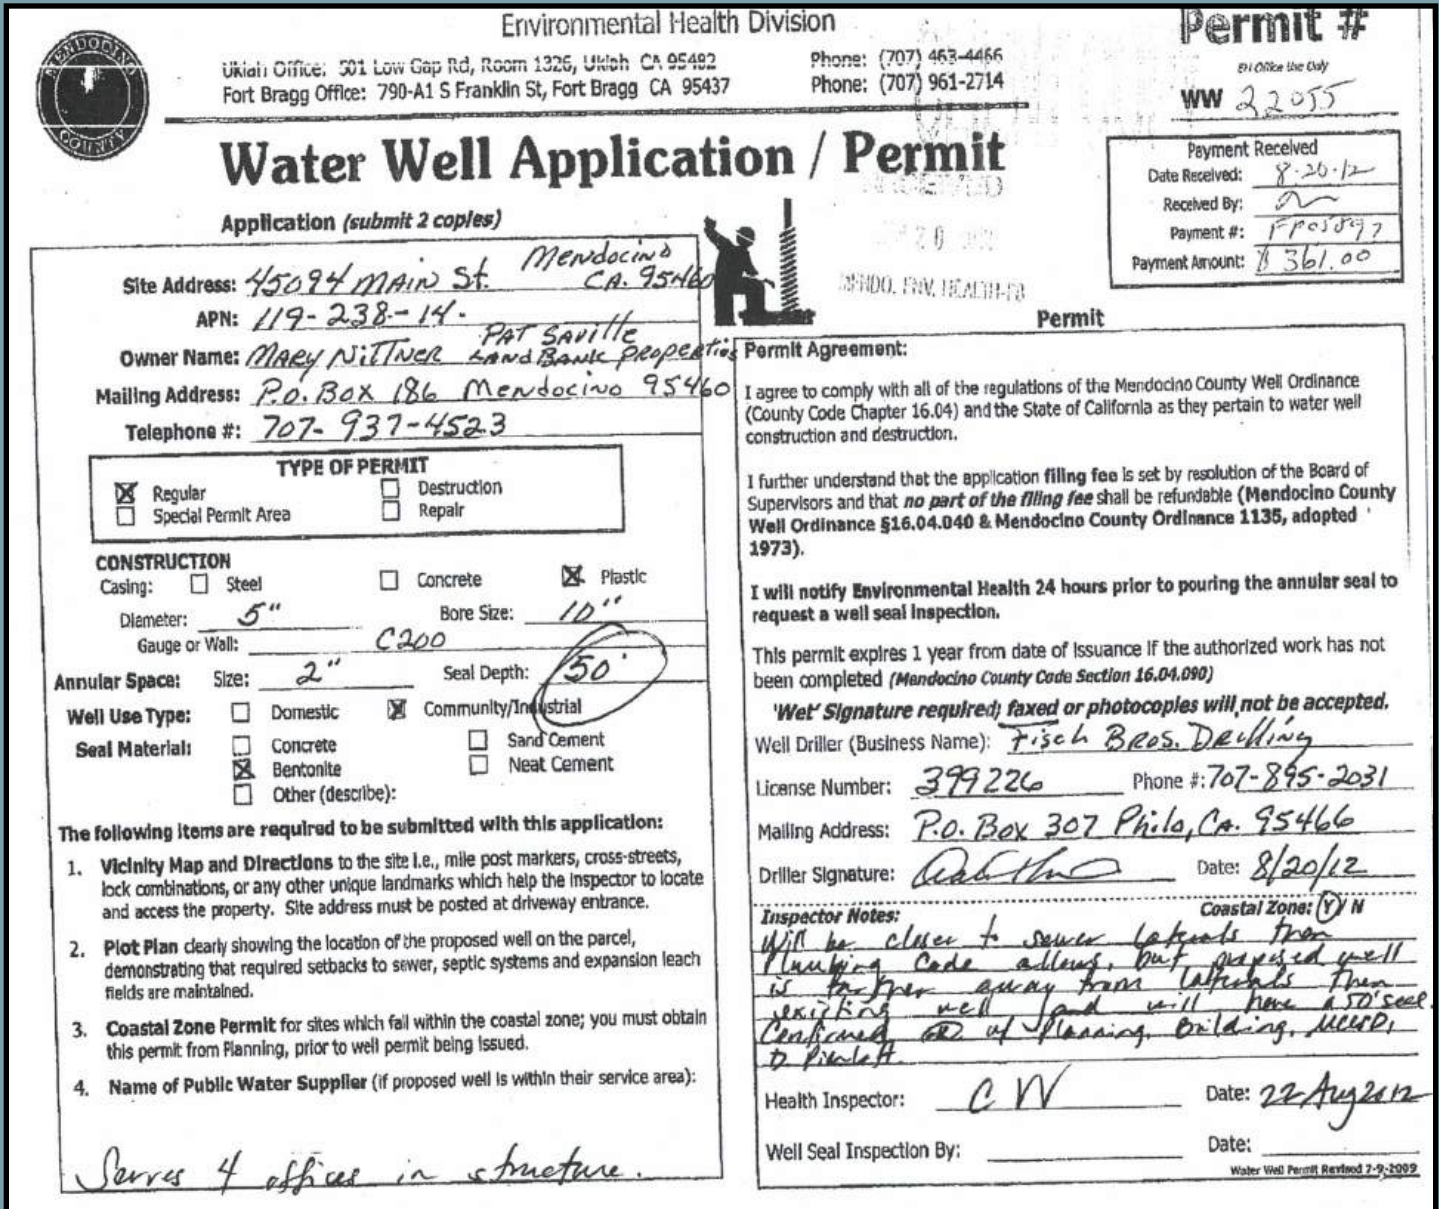 MENDOCINO
COUNTY
Environmental Health Division
Ukiah Office: 501 Low Gap Rd, Room 1326, Ukiah CA 95482 Phone: (707) 463-4466
Fort Bragg Office: 790-A1 S Franklin St, Fort Bragg CA 95437 Phone: (707) 961-2714
Permit #
EH Office Use Only
WW 22055
Water Well Application / Permit
Payment Received
Date Received: 8-20-12
Received By:
Payment #: FP05897
Payment Amount: $ 361.00
RECEIVED
20
MENDO. ENV. HEALTH-FB
Application (submit 2 copies)
Site Address: 45094 MAIN St. Mendocino CA. 95460
APN: 119-238-14.
Owner Name: MARY NITTNER PAT SAVILLE LAND BANK PROPERTIES
Mailing Address: P.O. BOX 186 Mendocino 95460
Telephone #: 707-937-4523
TYPE OF PERMIT
Regular Destruction
Special Permit Area Repair
CONSTRUCTION
Casing: Steel Concrete Plastic
Diameter: 5" Bore Size: 10"
Gauge or Wall: C200
Annular Space: Size: 2" Seal Depth: 50'
Well Use Type: Domestic Community/Industrial
Seal Material: Concrete Sand Cement
Bentonite Neat Cement
Other (describe):
The following items are required to be submitted with this application:
1. Vicinity Map and Directions to the site i.e., mile post markers, cross-streets,
lock combinations, or any other unique landmarks which help the inspector to locate
and access the property. Site address must be posted at driveway entrance.
2. Plot Plan clearly showing the location of the proposed well on the parcel,
demonstrating that required setbacks to sewer, septic systems and expansion leach
fields are maintained.
3. Coastal Zone Permit for sites which fall within the coastal zone; you must obtain
this permit from Planning, prior to well permit being issued.
4. Name of Public Water Supplier (if proposed well is within their service area):
Serves 4 offices in structure.
Permit
Permit Agreement:
I agree to comply with all of the regulations of the Mendocino County Well Ordinance
(County Code Chapter 16.04) and the State of California as they pertain to water well
construction and destruction.
I further understand that the application filing fee is set by resolution of the Board of
Supervisors and that no part of the filing fee shall be refundable (Mendocino County
Well Ordinance §16.04.040 & Mendocino County Ordinance 1135, adopted
1973).
I will notify Environmental Health 24 hours prior to pouring the annular seal to
request a well seal inspection.
This permit expires 1 year from date of issuance if the authorized work has not
been completed (Mendocino County Code Section 16.04.090)
'Wet' Signature required; faxed or photocopies will not be accepted.
Well Driller (Business Name): Fisch Bros. Drilling
License Number: 399226 Phone #: 707-895-2031
Mailing Address: P.O. Box 307 Philo, CA. 95466
Driller Signature: Date: 8/20/12
Inspector Notes: Coastal Zone: Y / N
Will be closer to sewer laterals then
Plumbing Code allows, but proposed well
is further away from laterals then
existing well and will have a 50' seal.
Confirmed w/ Planning, Building, MCCSD,
D.
Health Inspector: C W Date: 22 Aug 2012
Well Seal Inspection By: Date:
Water Well Permit Revised 7-9-2009